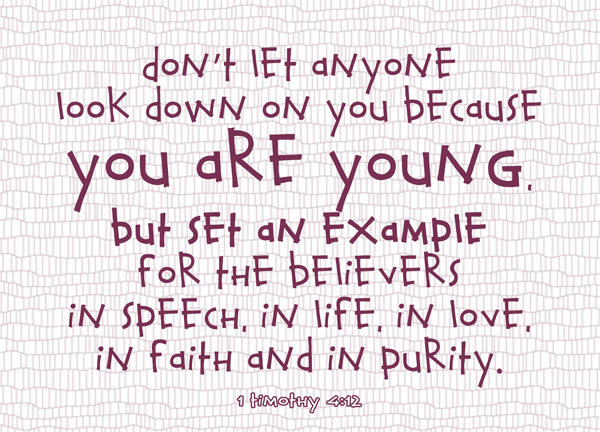 don't let anyone
look down on you because
you are young,
but set an example
for the believers
in speech, in life, in love,
in faith and in purity.
1 timothy 4:12